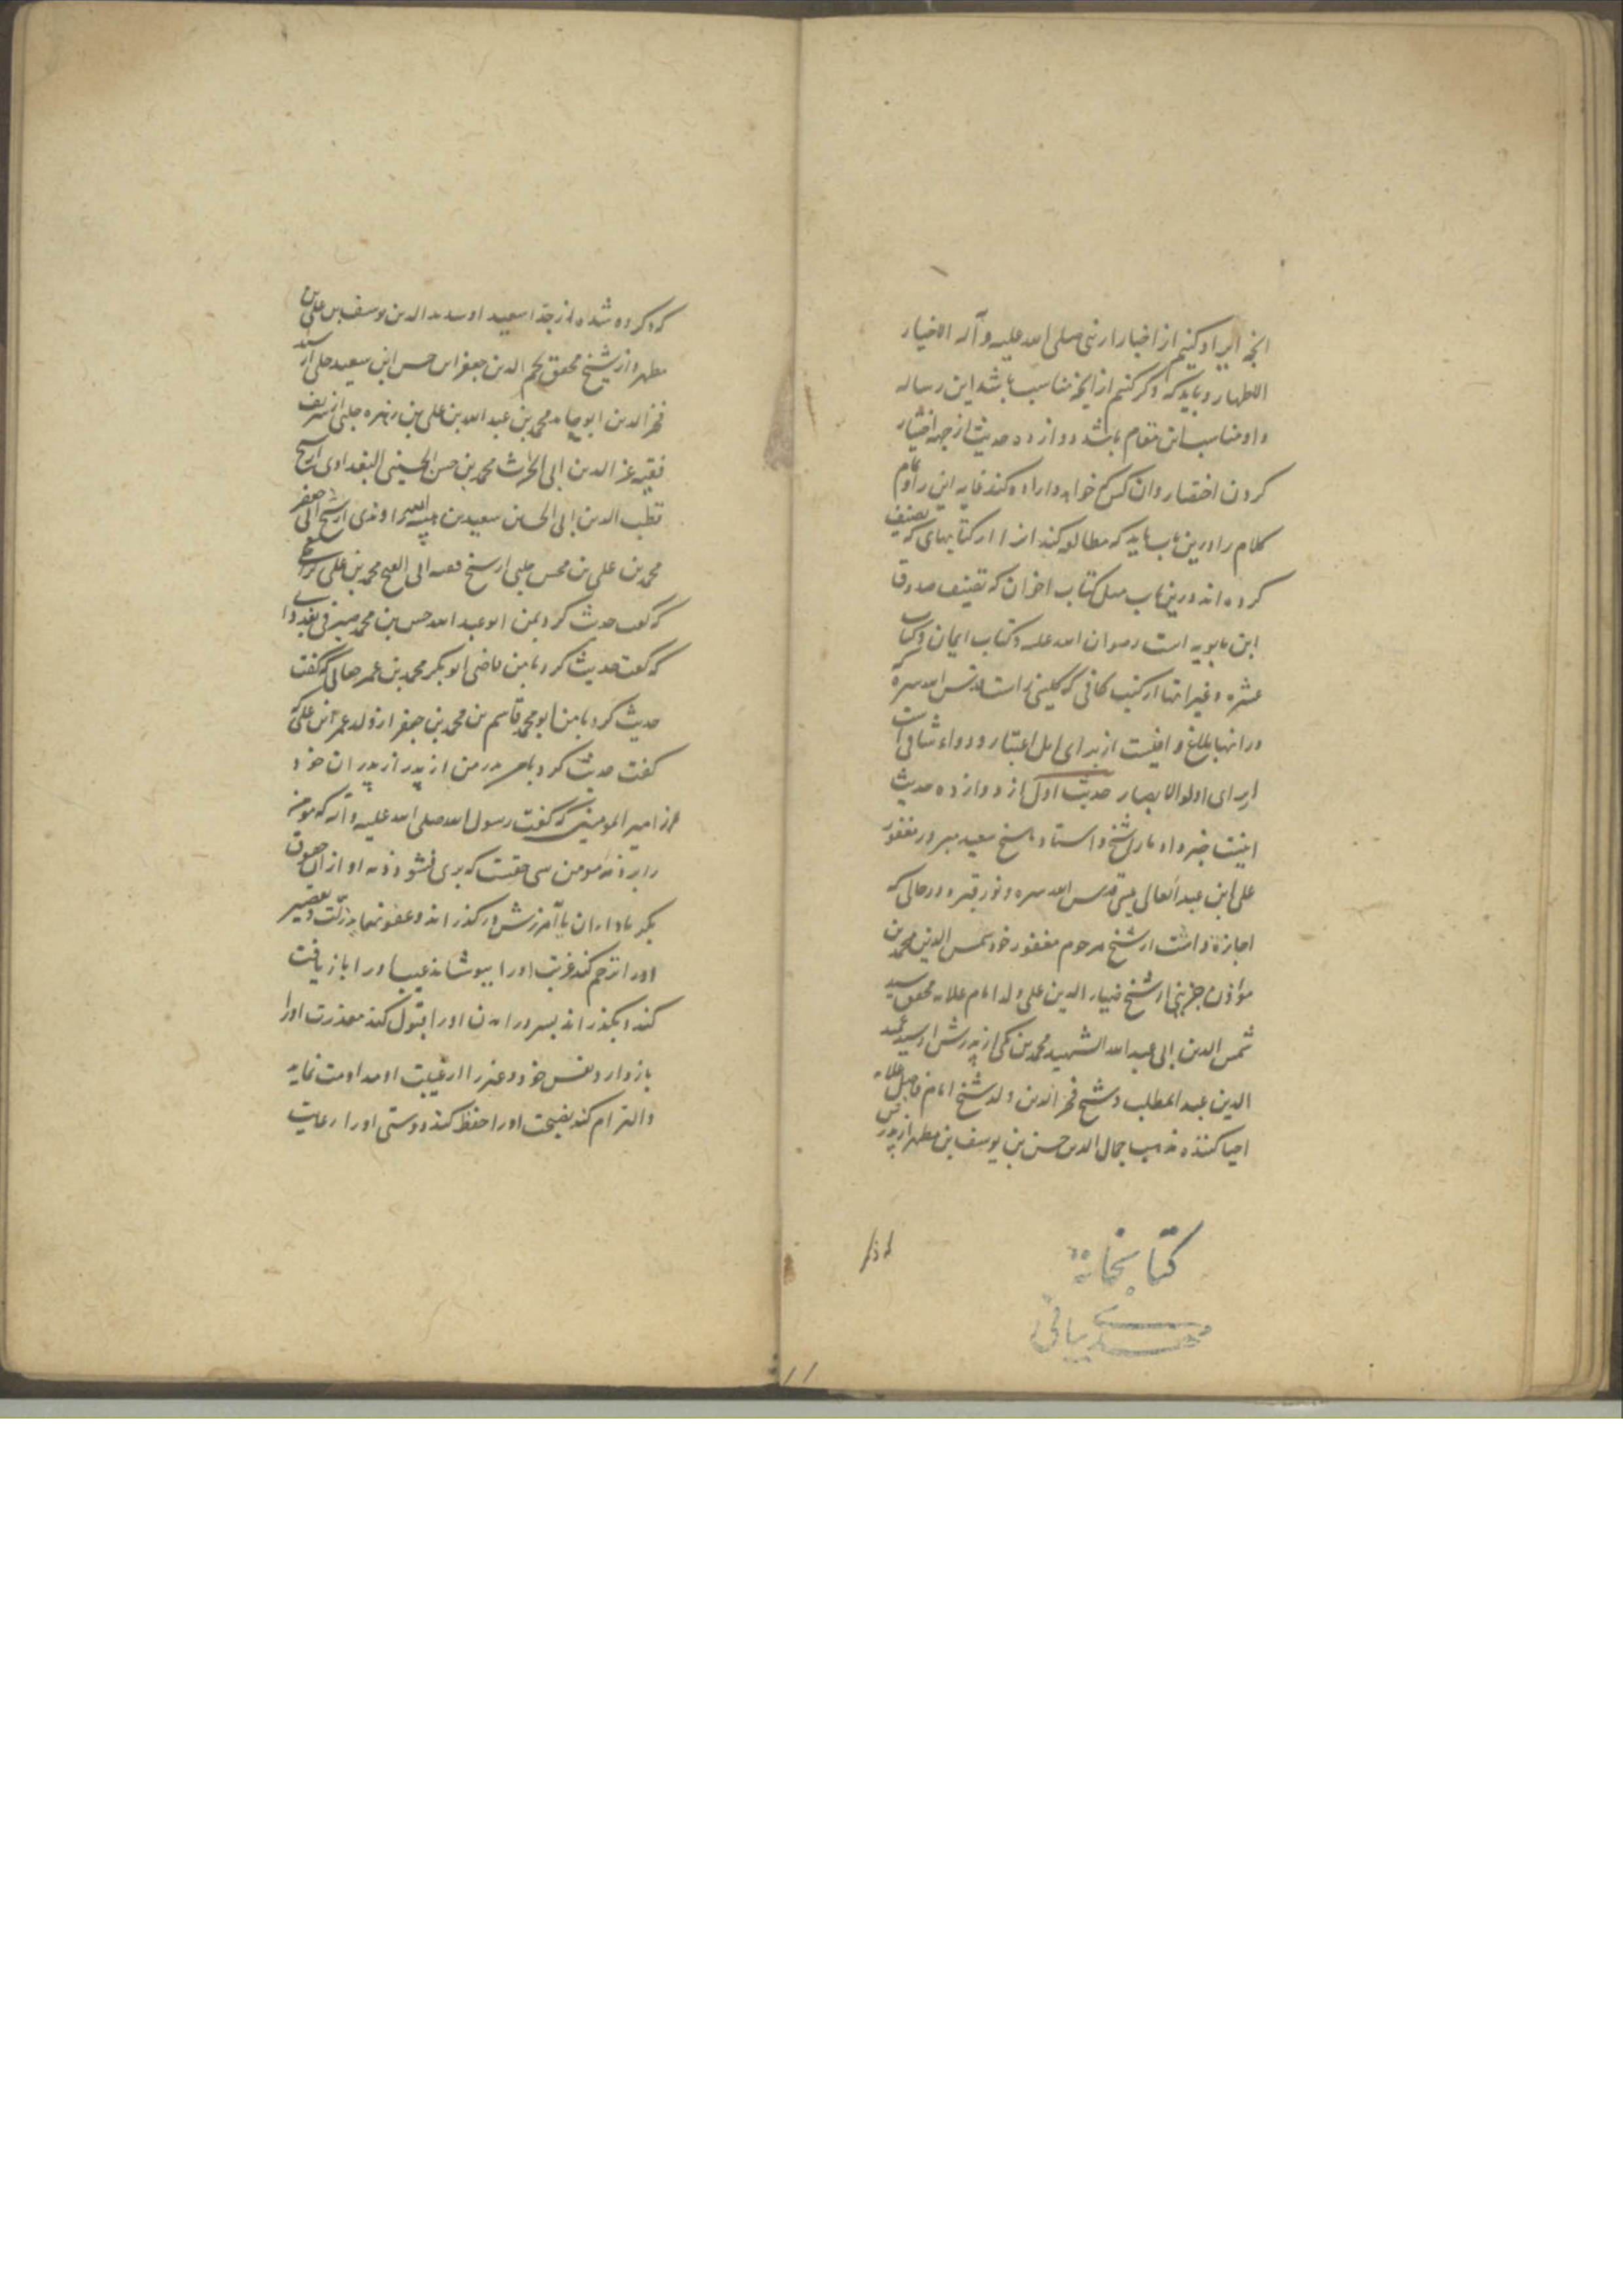 انچه ایراد کنیم از اخبار از نبی صلی الله علیه و آله الاخیار
الاطهار و باید که ذکر کنم از انچه مناسب باشد این رساله
و او مناسب این مقام باشد دوازده حدیث از جهه اختیار
کردن اختصار و ان کس که خواهد و اراده کند غایه این را و تمام
کلام را درین باب باید که مطالعه کند انرا از کتابهای که تصنیف
کرده اند درین باب مثل کتاب اخوان که تصنیف صدوق
ابن بابویه است رضوان الله علیه و کتاب ایمان و کتاب
عشره و غیر اینها از کتب کافی که کلینی راست قدس الله سره که
در انها بلاغ وافیست از برای اهل اعتبار و دواء شافی است
از برای اولو الابصار حدیث اول از دوازده حدیث
اینست خبر داد مارا شیخ و استاد ما شیخ سعید مبرور مغفور
علی ابن عبد العالی میسی قدس الله سره و نور قبره در حالی که
اجازة داشت از شیخ مرحوم مغفور خود شمس الدین محمد بن
مؤذن جزینی از شیخ ضیاء الدین علی ولد امام علامه محقق سید
شمس الدین ابی عبد الله الشهید محمد بن مکی از پدرش از سید عمید
الدین عبد المطلب و شیخ فخر الدین ولد شیخ امام فاضل علامه
احیا کننده مذهب جمال الدین حسن بن یوسف بن مطهر از پدر
کتابخانه
که ذکر کرده شده از جد سعید او سدید الدین یوسف بن علی بن
مطهر و از شیخ محقق نجم الدین جعفر ابن حسن ابن سعید حلی از سید
فخر الدین ابو حامد محمد بن عبد الله بن علی بن زهره حلبی از شریف
فقیه عز الدین ابی الحرث محمد بن حسن الحسینی البغدادی از شیخ
قطب الدین ابی الحسین سعید بن هبه الله راوندی از شیخ ابی جعفر
محمد بن علی بن محسن حلبی از شیخ فقیه ابی الفتح محمد بن علی کراجکی
که گفت حدیث کرد بمن ابو عبد الله حسین بن محمد صیرفی بغدادی
که گفت حدیث کرد بامن قاضی ابو بکر محمد بن عمر جعابی که گفت
حدیث کرد بامن ابو محمد قاسم بن محمد بن جعفر از ولد عمر ابن علی که
گفت حدیث کرد بامن پدر من از پدر از پدران خود
از امیر المومنین که گفت رسول الله صلی الله علیه و آله که مومن
را برذمه مومن سی حقست که بری نشود ذمه او از ان حقوق
مگر با اداء ان یا آمرزش در گذراند و عفو نماید زلت و تقصیر
اورا ترحم کند غربت اورا بپوشاند عیب اورا باز یافت
کند و بگذراند بسر در امدن اورا قبول کند معذرت اورا
باز دارد نفس خود و غیر را از غیبت او مداومت نماید
و التزام کند نصیحت اورا حفظ کند دوستی اورا رعایت